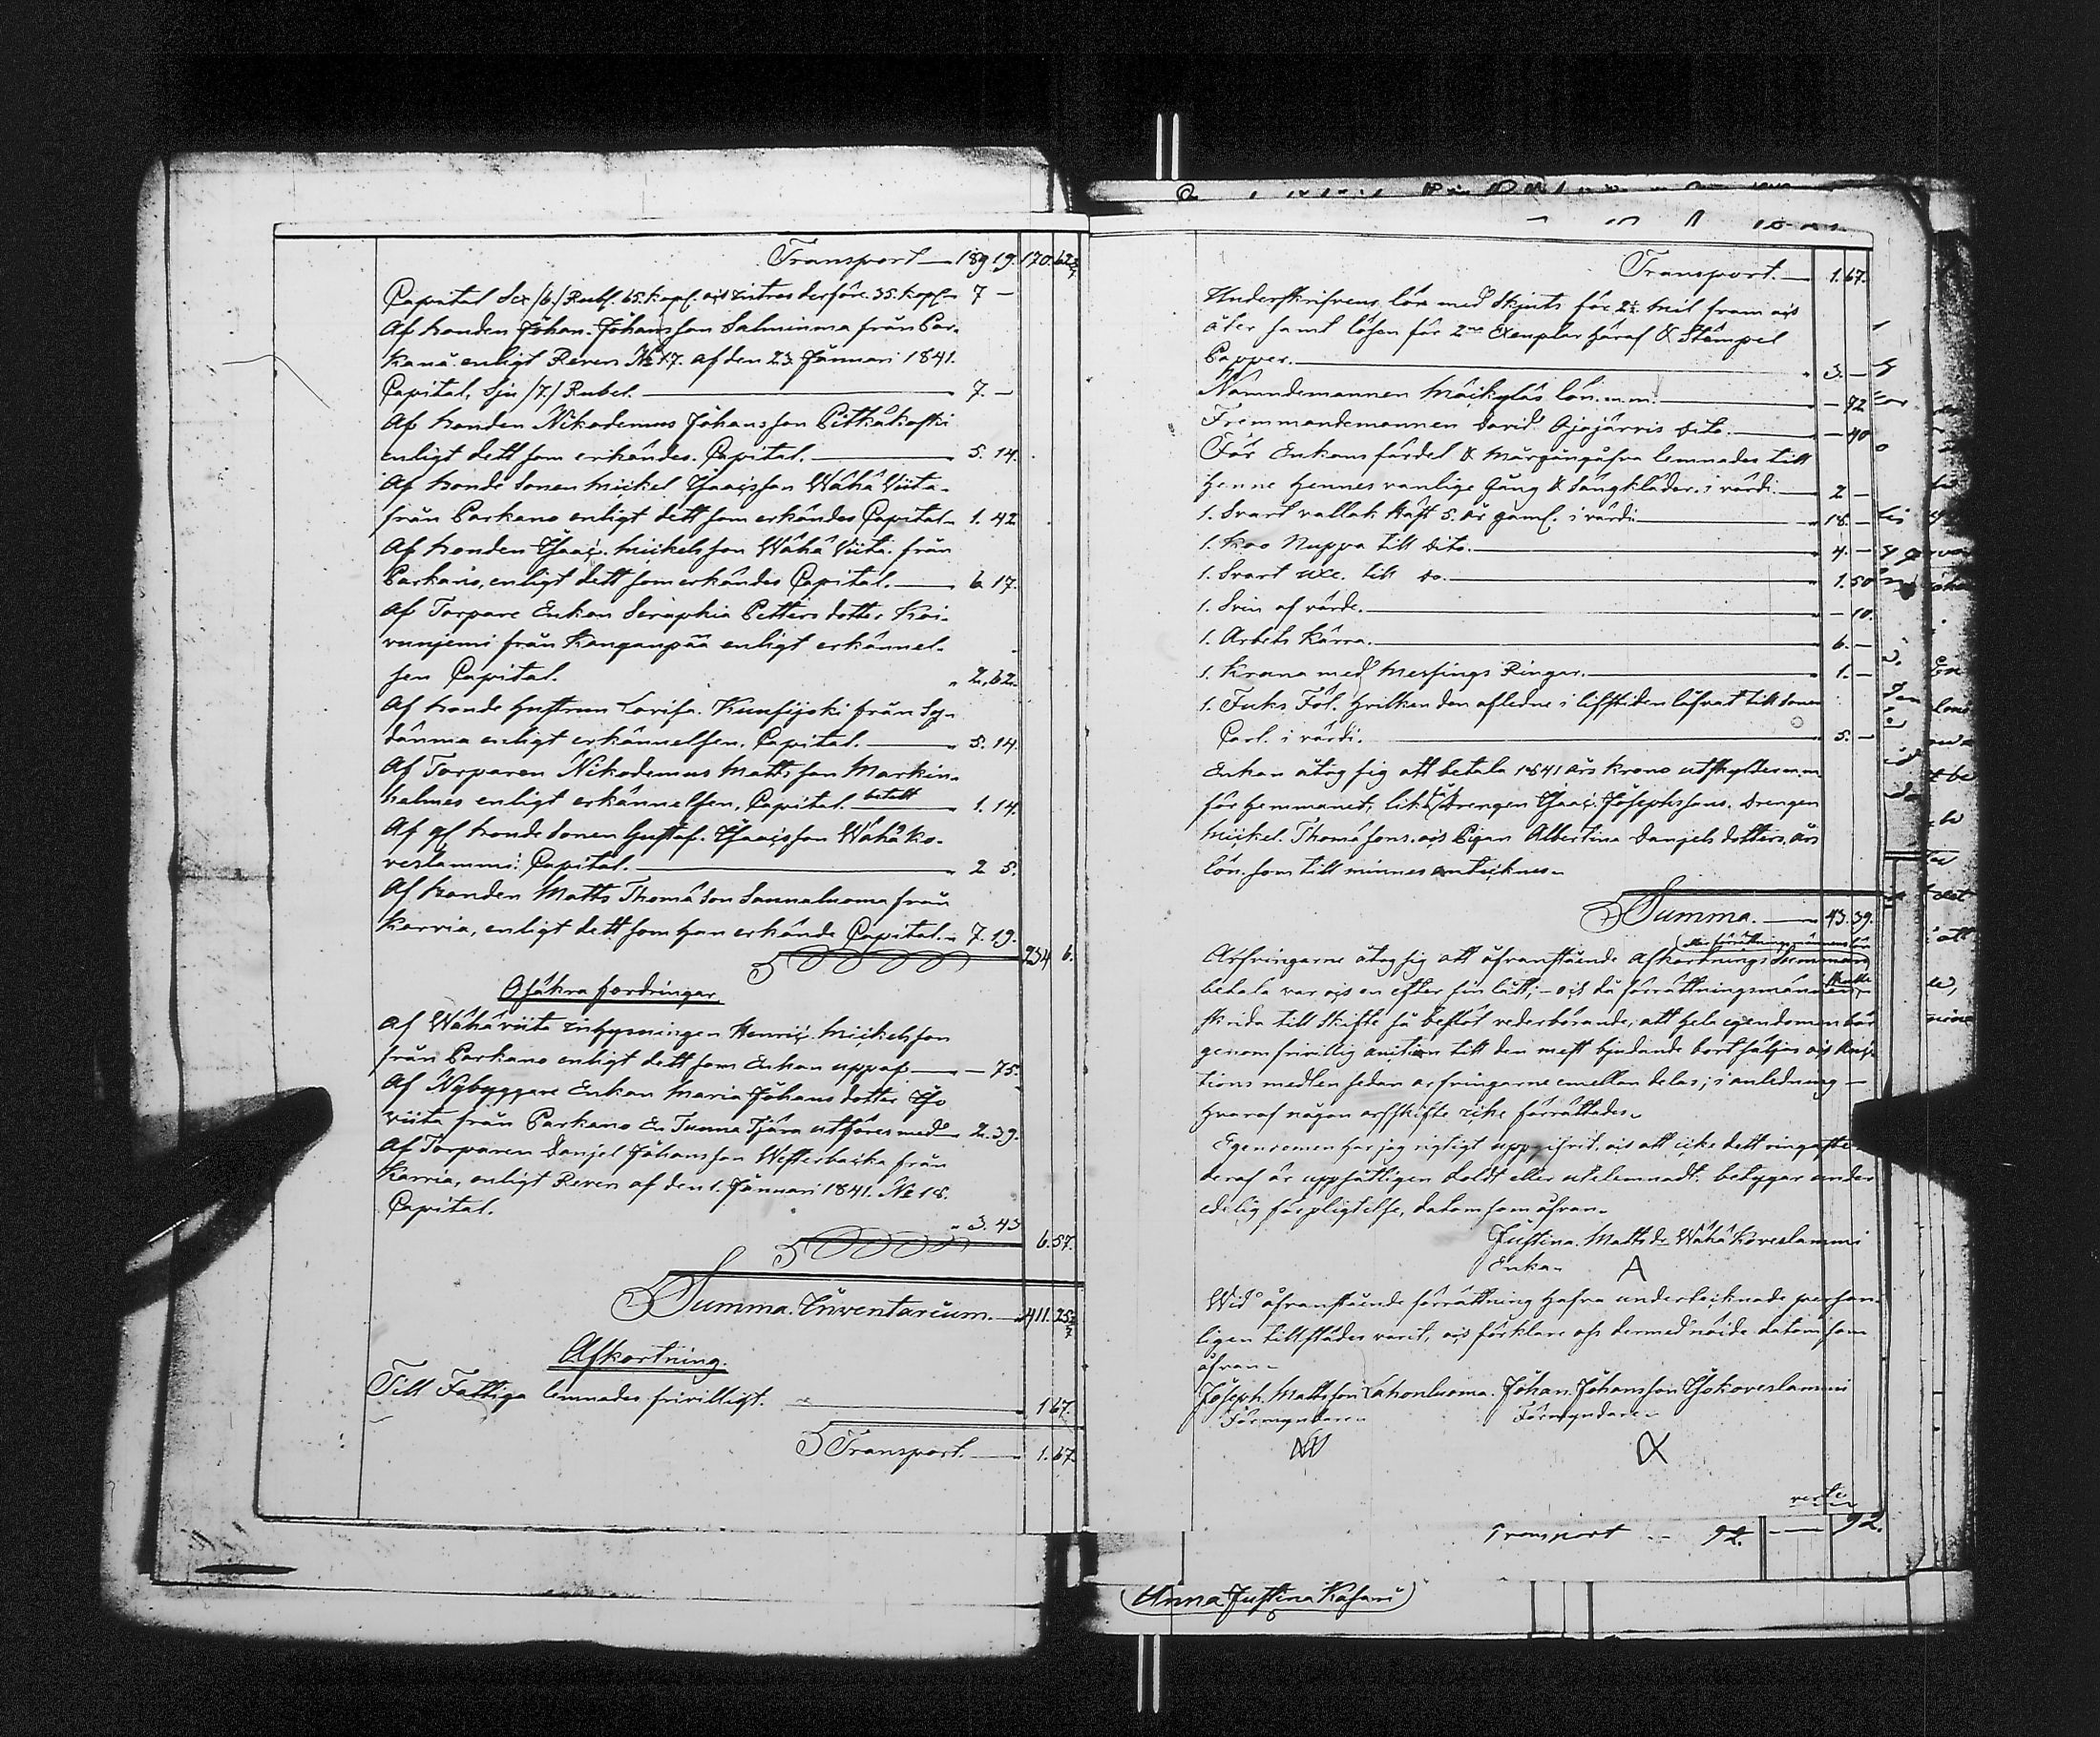 Transport — 189 19. 170. 62 2/7
Capital Sex /6./ Rubl. 65. kop. och Intres derföre 35. kop. 7 —
Af bonden Johan Johansson Salminma från Par-
kano enligt Revers № 17. af den 23. Januari 1841.
Capital, Sju /7./ Rubel. — 7. —
Af bonden Nikodemus Johansson Pitkäkoski
enligt dett som erkändes. Capital. — 5. 14.
Af bonde Sonen Mickel Isaacsson Wähä Viita
från Parkano enligt dett som erkändes Capital 1. 42
Af bonden Isaac Mickelsson Wähä Viita från
Parkano, enligt dett som erkändes Capital. — 6 17.
Af Torpare Enkan Seraphia Petters dotter Koi-
vunjemi från Kanganpää enligt erkännel-
sen Capital. „ 2. 62.
Af bonde hustrun Lovisa Kuusijoki från
enligt erkännelsen. Capital. — „ 5. 14.
Af Torparen Nikodemus Mattsson Markin-
helmes enligt erkännelsen. Capital. betalt „ 1. 14.
Af bonde Sonen Gustaf Isaacsson Wähä Ko-
veslammi. Capital. — „ 2 5.
Af bonden Matts Thomä Son Saunaluoma från
Karvia, enligt dett som han erkände Capital. „ 7. 19.
234 6.
Osäkra fordringar
Af Wähä viita Inhysningen Henric Mickelsson
från Parkano enligt dett som Enkan uppgaf — — 75.
Af Nybyggare Enkan Maria Johans dotter Iso
viita från Parkano En Tunna Tjära utföres med 2. 39.
Af Torparen Danjel Johansson Westerbacka från
Karvia, enligt Revers af den 1. Januari 1841. № 18.
Capital. „ 3. 43
6. 57.
Summa. Inventarium. — 411. 25 2/7
Afkortning.
Till Fattiga lemnades frivilligt. 1 67.
Transport. — 1. 67
Transport. — 1. 67.
Underskrifvens lön med Skjuts för 2½ mil fram och
åter samt lösen för 2ne Exemplar häraf & Stämpel
Papper. — „ 3. —
Nämndemannen Mäikyläs lön. m.m. — — 92
Fremmandemannen David Ojajärvis dito. — — 40
För Enkans fördel & Morgongåfva lemnades till
henne hennes vanlige Gång & Sängkläder. i värdi — 2 —
1. Svart vallak Häst 5. år gaml. i värdi — „ 18. —
1. Koo Nuppa till dito. — „ 4. —
1. Svart till do. — „ 1. 50
1. Svin af värde. — „ — 10.
1. Arbets Kärra. — „ 6. —
1. Krana med Messings Ringar. — „ 1. —
1. Fuks Föl. hvilken den aflednei lifstiden lofvat till Sonen
Carl. i värdi. — „ 5. —
Enkan åtog sig att betala 1841 års krono utskylder m.m
för hemmanet, likså drengen Isaac Josephssons. drengen
Mickel Thomäsons. och Pigan Albertina Danjels dotters. års
lön. som till minnes anteknes.
Summa. — 43. 39.
Arfvingarne åtog sig att åfvanstående Afkortnings Summan
betala var och en efter sin lått; — och då förrättningsmännen skulle
skrida till Skifte så beslöt vederbörande, att hela egendomen bör
genom frivillig auction till den mest bjudande bort säljas och Auc-
tions medlen sedan arfvingarne emellan delas; i anledning —
hvaraf någon arfskifte icke förrättades.
Egendomen har jag rigtigt uppgifvit, och att icke dett ringaste
deraf är uppsåtligen doldt eller utelemnadt. betygar under
edelig förpligtelse, datom som åfvan.
Justina Matts dr Wähä Koveslammi
Enka. A
Wid åfvanstående förrättning hafva undertecknade person-
ligen tillstädes varit, och förklare oss dermed nöide datom som
åfvan.
Joseph Mattsson Lahonluoma. Johan Johansson Isokoveslammi
Förmyndare Förmyndare
Transport 92. — 92.
Anna Justina Kasari